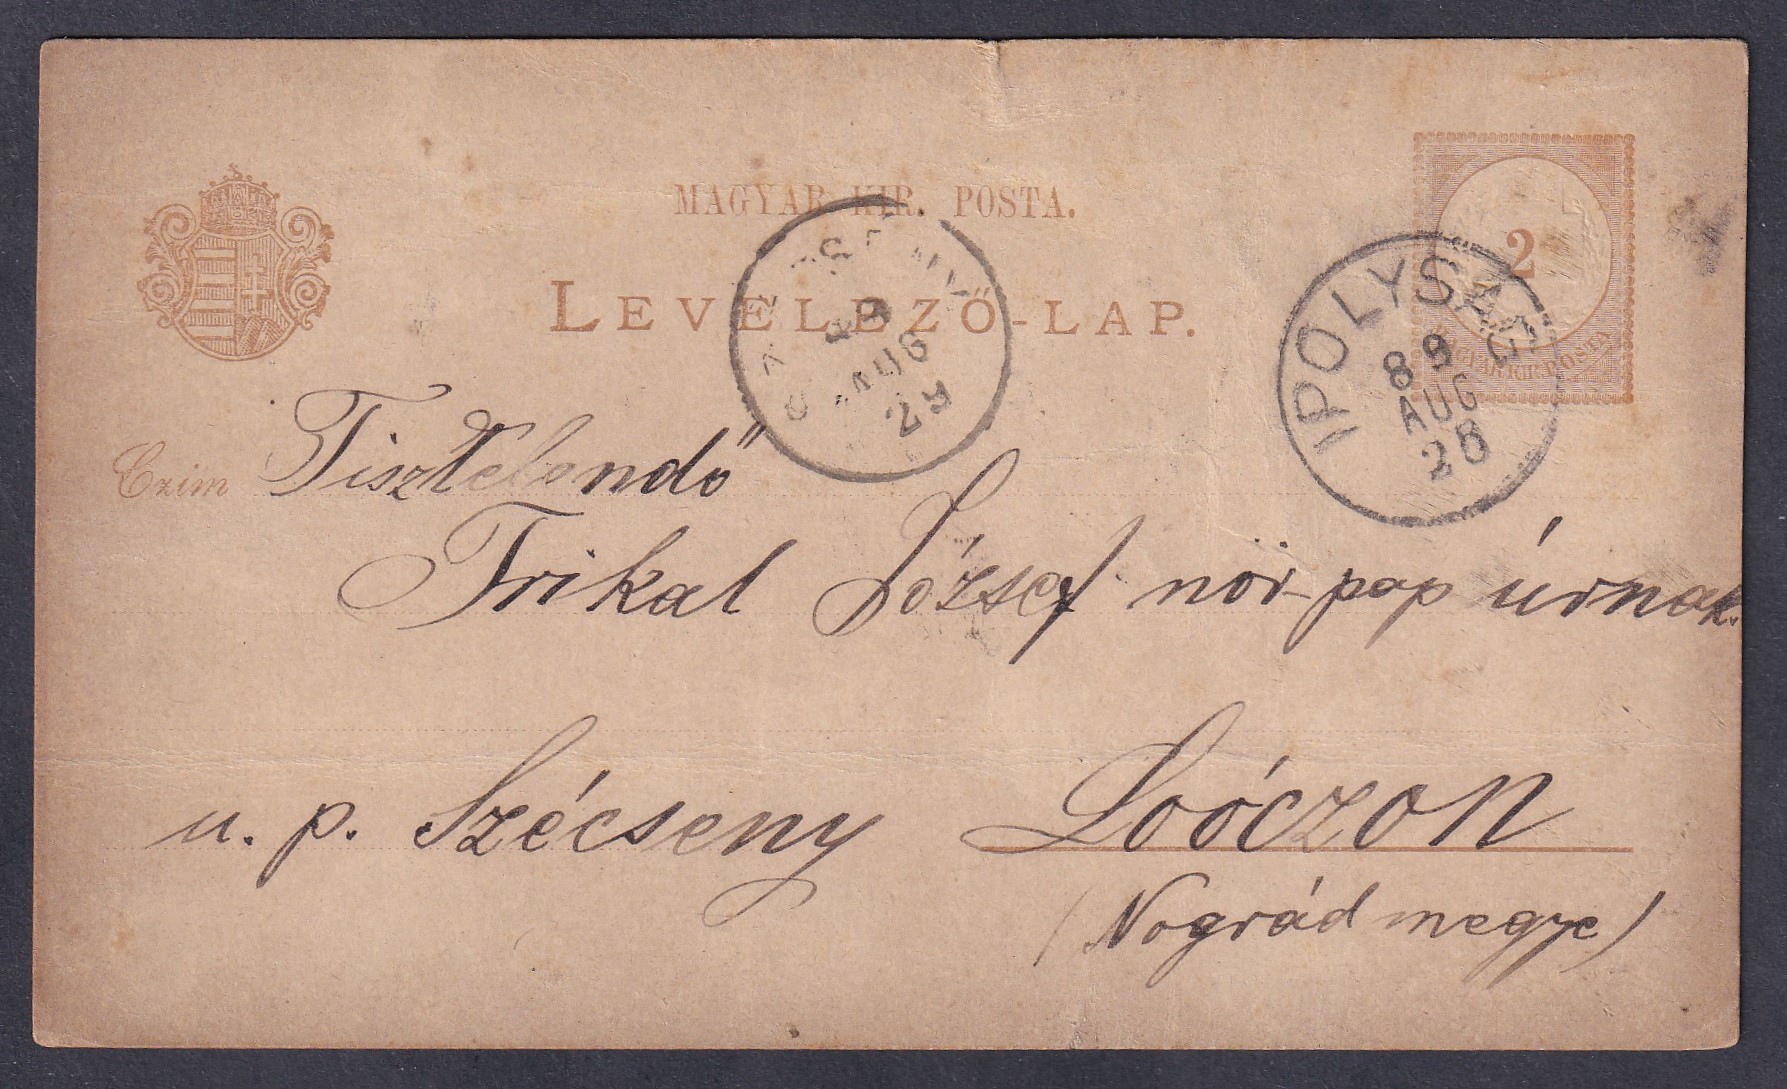 MAGYAR KIR. POSTA.
LEVELEZŐ-LAP.
2
MAGYAR KIR. POSTA
IPOLYSÁG
89
AUG
28
89
AUG
28
Czim
Tisztelendő
Trikal József növ-pap úrnak.
u. p. Szécseny
Loóczon
(Nográd megye)